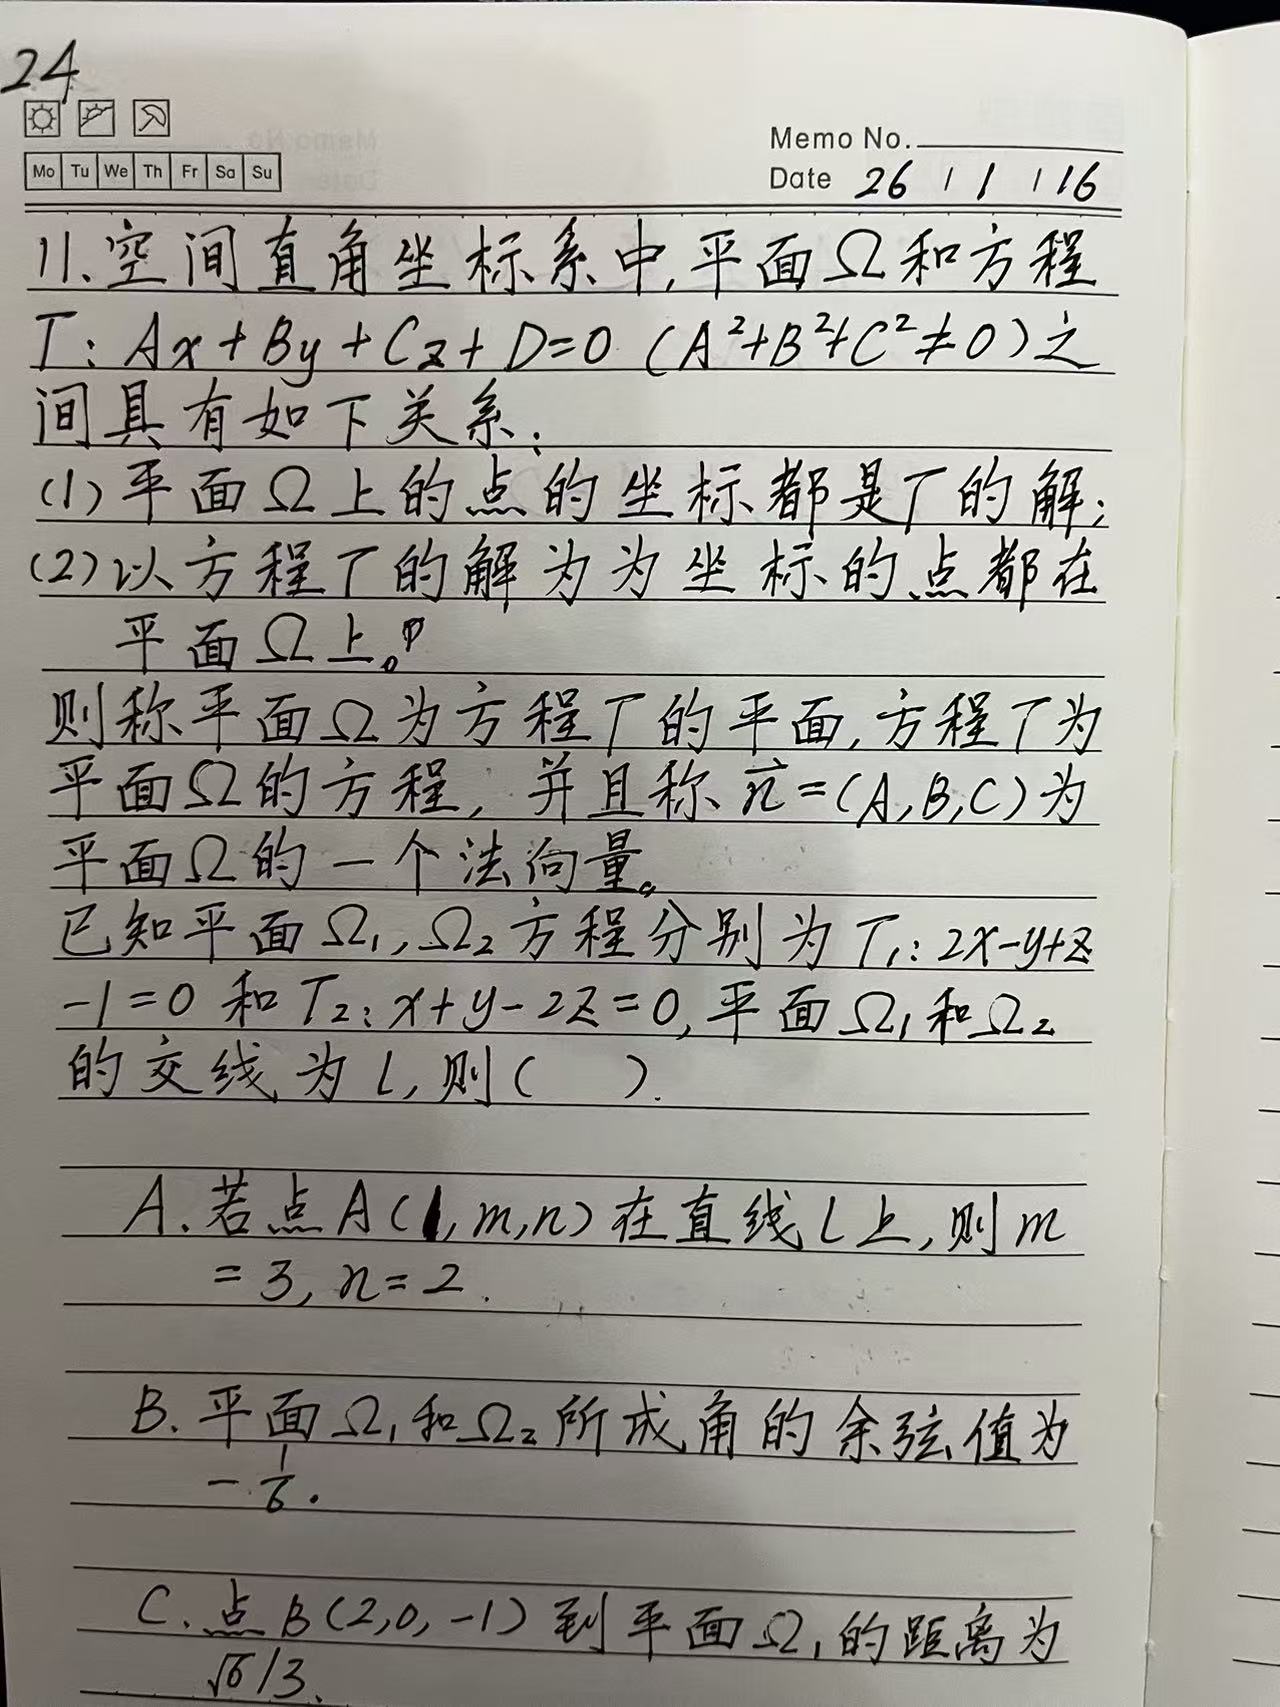 24
Memo No.
Mo Tu We Th Fr Sa Su
Date 26 / 1 / 16
11.空间直角坐标系中,平面Ω和方程
T: Ax+By+Cz+D=0 (A²+B²+C²≠0)之
间具有如下关系:
(1)平面Ω上的点的坐标都是T的解;
(2)以方程T的解为为坐标的点都在
平面Ω上。
则称平面Ω为方程T的平面,方程T为
平面Ω的方程,并且称n⃗=(A,B,C)为
平面Ω的一个法向量。
已知平面Ω₁,Ω₂方程分别为T₁:2x-y+z
-1=0和T₂:x+y-2z=0,平面Ω₁和Ω₂
的交线为l,则( ).
A.若点A(1,m,n)在直线l上,则m
=3,n=2.
B.平面Ω₁和Ω₂所成角的余弦值为
-1/6.
C.点B(2,0,-1)到平面Ω₁的距离为
√6/3.